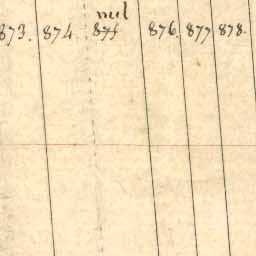 nul
873. 874 875 876. 877 878.